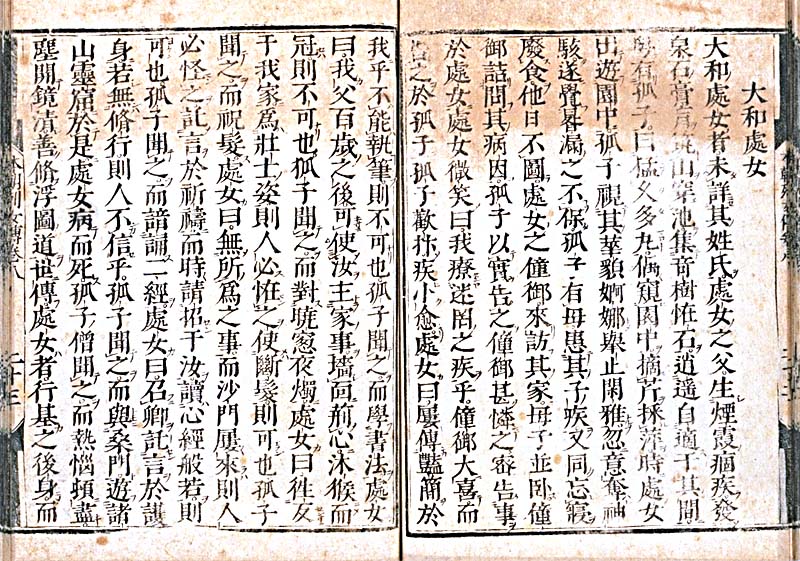 大和處女
大和處女者未詳其姓氏處女之父生煙霞痼疾發
泉石膏肓 山穿池集奇樹恠石逍遥自適于其間
有孤子曰 多 偶窺園中摘芹採萍時處女
出遊園中孤子視其華貌婀娜舉止閑雅忽意奪神
駭遂覺晷漏之不保孤子有母患其子疾又同忘寢
廢食他日不圖處女之僮御來訪其家母子並卧僮
御詰問其病因孤子以實告之僮御甚憐之審告事
於處女處女微笑曰我療迷罔之疾乎僮御大喜而
告之於孤子孤子歡抃疾小愈處女曰屢傳艷簡於
我乎不能執筆則不可也孤子聞之而學書法處女
曰我父百歲之後可使汝主家事墻面荊心沐猴而
冠則不可也孤子聞之而對曉窓夜燭處女曰徃反
于我家為壯士姿則人必恠之使斷髮則可也孤子
聞之而祝髮處女曰無所為之事而沙門屢來則人
必怪之託言於祈禱而時請招于汝讀心經般若則
可也孤子聞之而諳誦二經處女曰召卿託言於護
身若無脩行則人不信乎孤子聞之而與桑門遊諸
山靈窟於是處女病而死孤子僧聞之而熱惱頓盡
塵開鏡清善脩浮圖道世傳處女者行基之後身而
本朝列女傳卷八 二十三